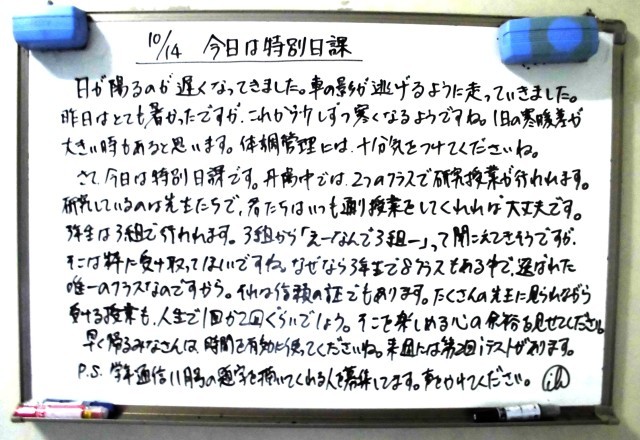 10/14 今日は特別日課
日が陽るのが遅くなってきました。車の影が逃げるように走っていきました。
昨日はとても暑かったですが、これから少しずつ寒くなるようですね。1日の寒暖差が
大きい時もあると思います。体調管理には、十分気をつけてくださいね。
さて、今日は特別日課です。丹陽中では、2つのクラスで研究授業が行われます。
研究しているのは先生たちで、君たちはいつも通り授業をしてくれれば大丈夫です。
3年生は3組で行われます。3組から「えーなんで3組ー」って聞こえてきそうですが、
そこは粋に受け取ってほしいですね。なぜなら3年生で8クラスもある中で、選ばれた
唯一のクラスなのですから。それは信頼の証でもあります。たくさんの先生に見られながら
受ける授業も、人生で1回か2回ぐらいでしょう。そこを楽しめる心の余裕を見せてください。
早く帰るみなさんは、時間を有効に使ってくださいね。来週には第2回テストがあります。
P.S. 学年通信11月号の題字を描いてくれる人を募集してます。声をかけてください。